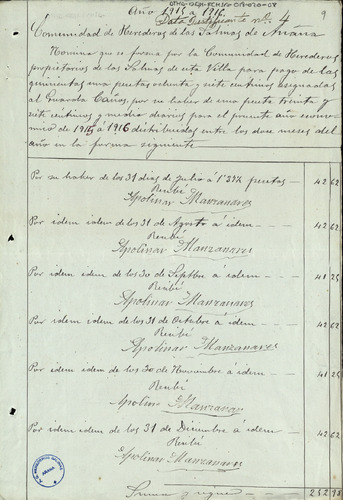 Año 1915 a 1916
Data Justificante nº 4
9
Comunidad de Herederos de las Salinas de Añana
Nomina que se forma por la Comunidad de Herederos
propietarios de las Salinas de esta Villa para pago de las
quinientas una pesetas ochenta y siete centimos asignadas
al Guarda Caños, por su haber de una peseta treinta y
siete centimos y medio diarios para el presente año econo-
mico de 1915 a 1916 distribuidas entre los doce meses del
año en la forma siguiente
Por su haber de los 31 dias de Julio á 1'37½ pesetas 42 62
Recibí
Apolinar Manzanares
Por idem idem de los 31 de Agosto á idem 42 62
Recibí
Apolinar Manzanares
Por idem idem de los 30 de Septbre a idem 41 25
Recibí
Apolinar Manzanares
Por idem idem de los 31 de Octubre á idem 42 62
Recibí
Apolinar Manzanares
Por idem idem de los 30 de Noviembre á idem 41 25
Recibí
Apolinar Manzanares
Por idem idem de los 31 de Diciembre á idem 42 62
Recibí
Apolinar Manzanares
Suma y sigue 252 98